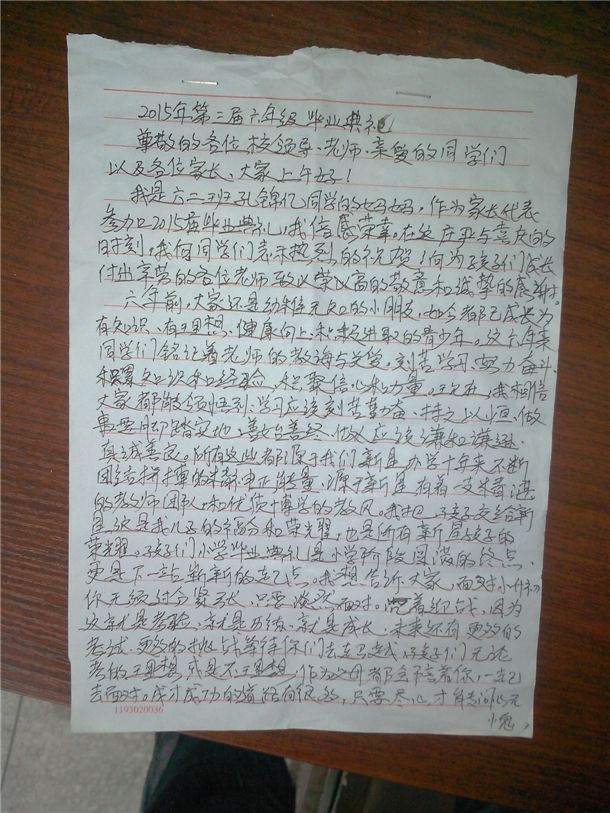 2015年第二届六年级毕业典礼
尊敬的各位校领导、老师、亲爱的同学们
以及各位家长、大家上午好！
我是六二班孔锦亿同学的妈妈，作为家长代表
参加2015届毕业典礼，我倍感荣幸。在这庄严与喜庆的
时刻，我向同学们表示热烈的祝贺！向为孩子们成长
付出辛劳的各位老师致以崇高的敬意和诚挚的感谢。
六年前，大家还是幼稚无知的小朋友，如今都已成长为
有知识、有理想、健康向上、积极进取的青少年。这六年来
同学们铭记着老师的教诲与关爱，刻苦学习、努力奋斗、
积累知识和经验，积聚信心和力量。现在，我相信
大家都能领悟到，学习应该刻苦勤奋、持之以恒、做
事要脚踏实地、善始善终、做人应该谦和谦逊、
真诚善良。所有这些都源于我们新星办学十年来不断
团结拼搏的精神正能量、源于新星有着一支精湛
的教师团队和优质博学的教风。我把孩子交给新
星这是我儿子的福分和荣光耀，也是所有新星孩子的
荣光耀。孩子们小学毕业典礼是小学阶段圆满的终点、
更是下一站崭新的起点。我想告诉大家，面对小升初
你无须过分紧张，只要淡然面对。因为
这就是考验、就是历练、就是成长、未来还有更多的
考试、更多的挑战等待你们去迎战，孩子们无论
考的理想或是不理想，作为父母都会陪着你，一起
去面对。成才成功的道路有很多，只要尽心，才能问心无
愧，
1193020036